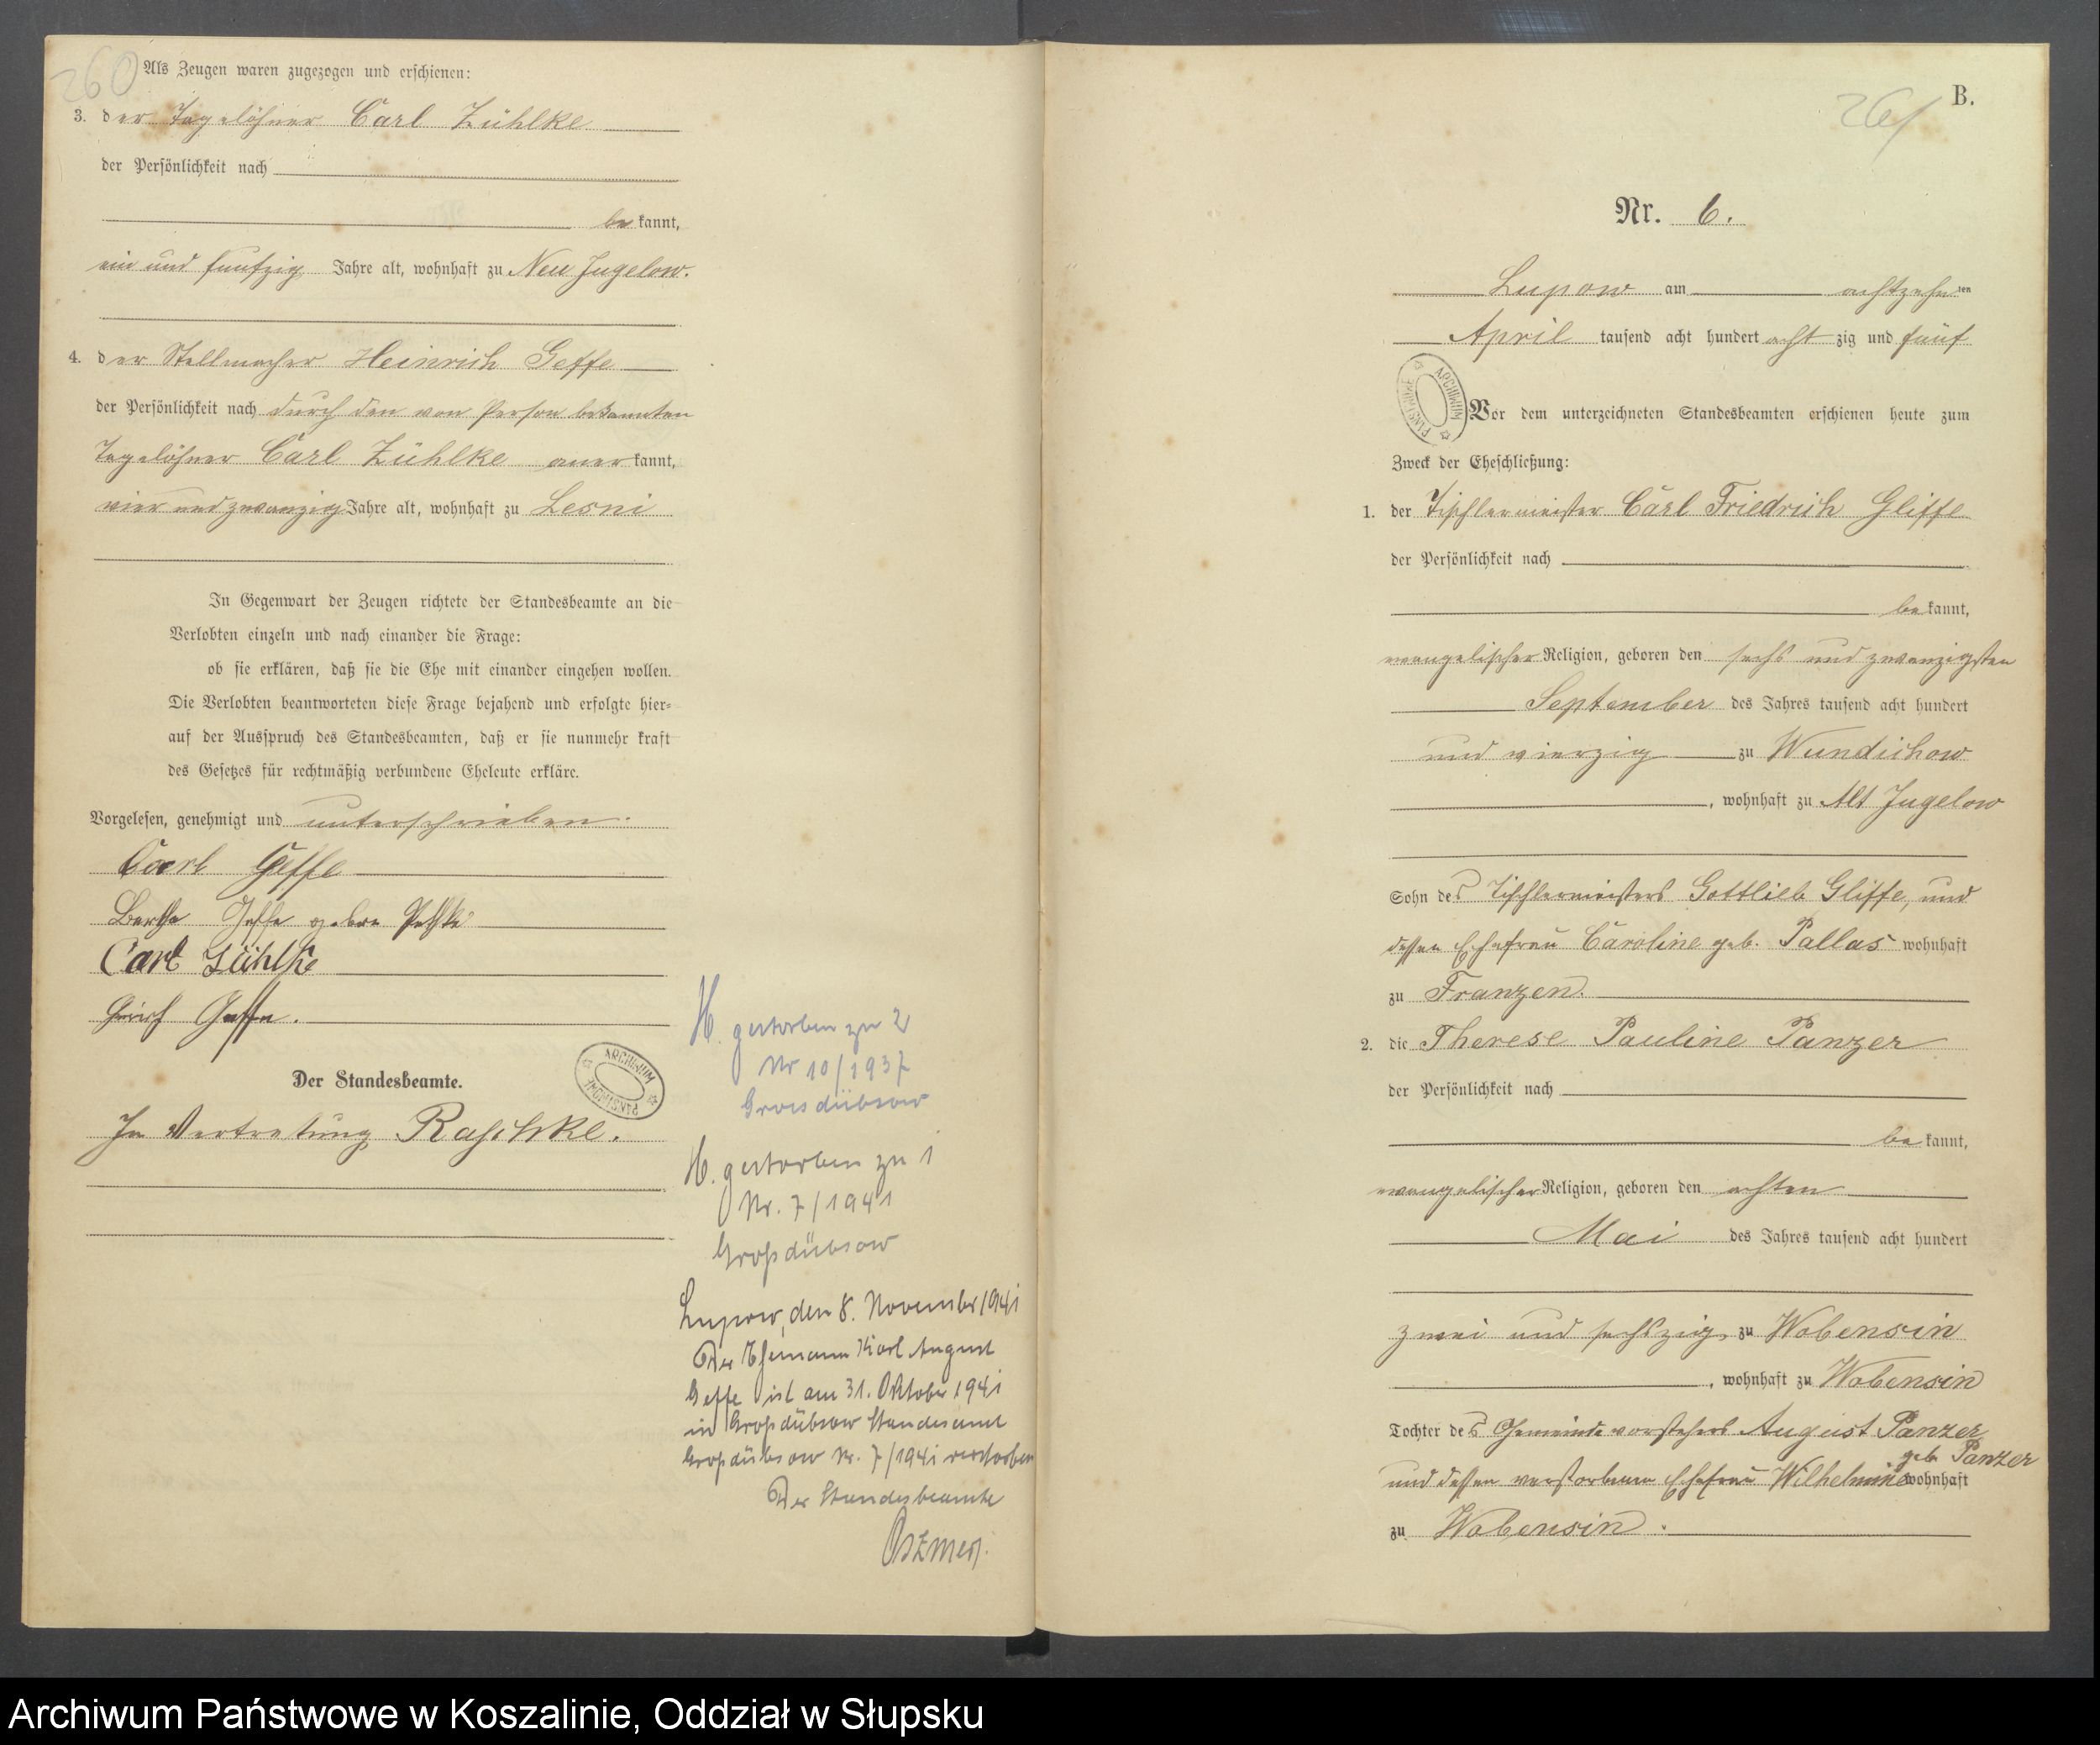 260
Als Zeugen waren zugezogen und erschienen:
3. der Tagelöhner Carl Zühlke
der Persönlichkeit nach
be kannt,
ein und funfzig Jahre alt, wohnhaft zu Neu Jugelow.
4. der Stellmacher Heinrich Geffe
der Persönlichkeit nach durch den von Person bekannten
Tagelöhner Carl Zühlke aner kannt,
vier und zwanzig Jahre alt, wohnhaft zu Lesni
In Gegenwart der Zeugen richtete der Standesbeamte an die
Verlobten einzeln und nach einander die Frage:
ob sie erklären, daß sie die Ehe mit einander eingehen wollen.
Die Verlobten beantworteten diese Frage bejahend und erfolgte hier-
auf der Ausspruch des Standesbeamten, daß er sie nunmehr kraft
des Gesetzes für rechtmäßig verbundene Eheleute erkläre.
Vorgelesen, genehmigt und unterschrieben.
Carl Geffe
Bertha Geffe
Carl Zühlke
Geffe.
Der Standesbeamte.
ARCHIWUM PAŃSTWOWE
In Vertretung Raschke.
H. gestorben zu 2
Nr 10/1937
Grossdübsow
H. gestorben zu 1
Nr. 7/1941
Großdübsow
Lupow, den 8. November 1941
Der Ehemann Karl August
Geffe ist am 31. Oktober 1941
in Großdübsow Standesamt
Großdübsow Nr. 7/1941 verstorben
Der Standesbeamte
261
B.
Nr. 6.
Lupow am achtzehn ten
April tausend acht hundert acht zig und fünf
ARCHIWUM PAŃSTWOWE
Vor dem unterzeichneten Standesbeamten erschienen heute zum
Zweck der Eheschließung:
1. der Tischlermeister Carl Friedrich Gliffe
der Persönlichkeit nach
be kannt,
evangelischer Religion, geboren den sechs und zwanzigsten
September des Jahres tausend acht hundert
und vierzig zu Wundichow
, wohnhaft zu Alt Jugelow
Sohn des Tischlermeisters Gottlieb Gliffe, und
dessen Ehefrau Caroline geb. Pallas wohnhaft
zu Franzen.
2. die Therese Pauline Panzer
der Persönlichkeit nach
be kannt,
evangelischer Religion, geboren den achten
Mai des Jahres tausend acht hundert
zwei und sechszig zu Wobensin
, wohnhaft zu Wobensin
Tochter des Gemeindevorstehers August Panzer
und dessen verstorbene Ehefrau Wilhelmine geb Panzer wohnhaft
zu Wobensin.
Archiwum Państwowe w Koszalinie, Oddział w Słupsku